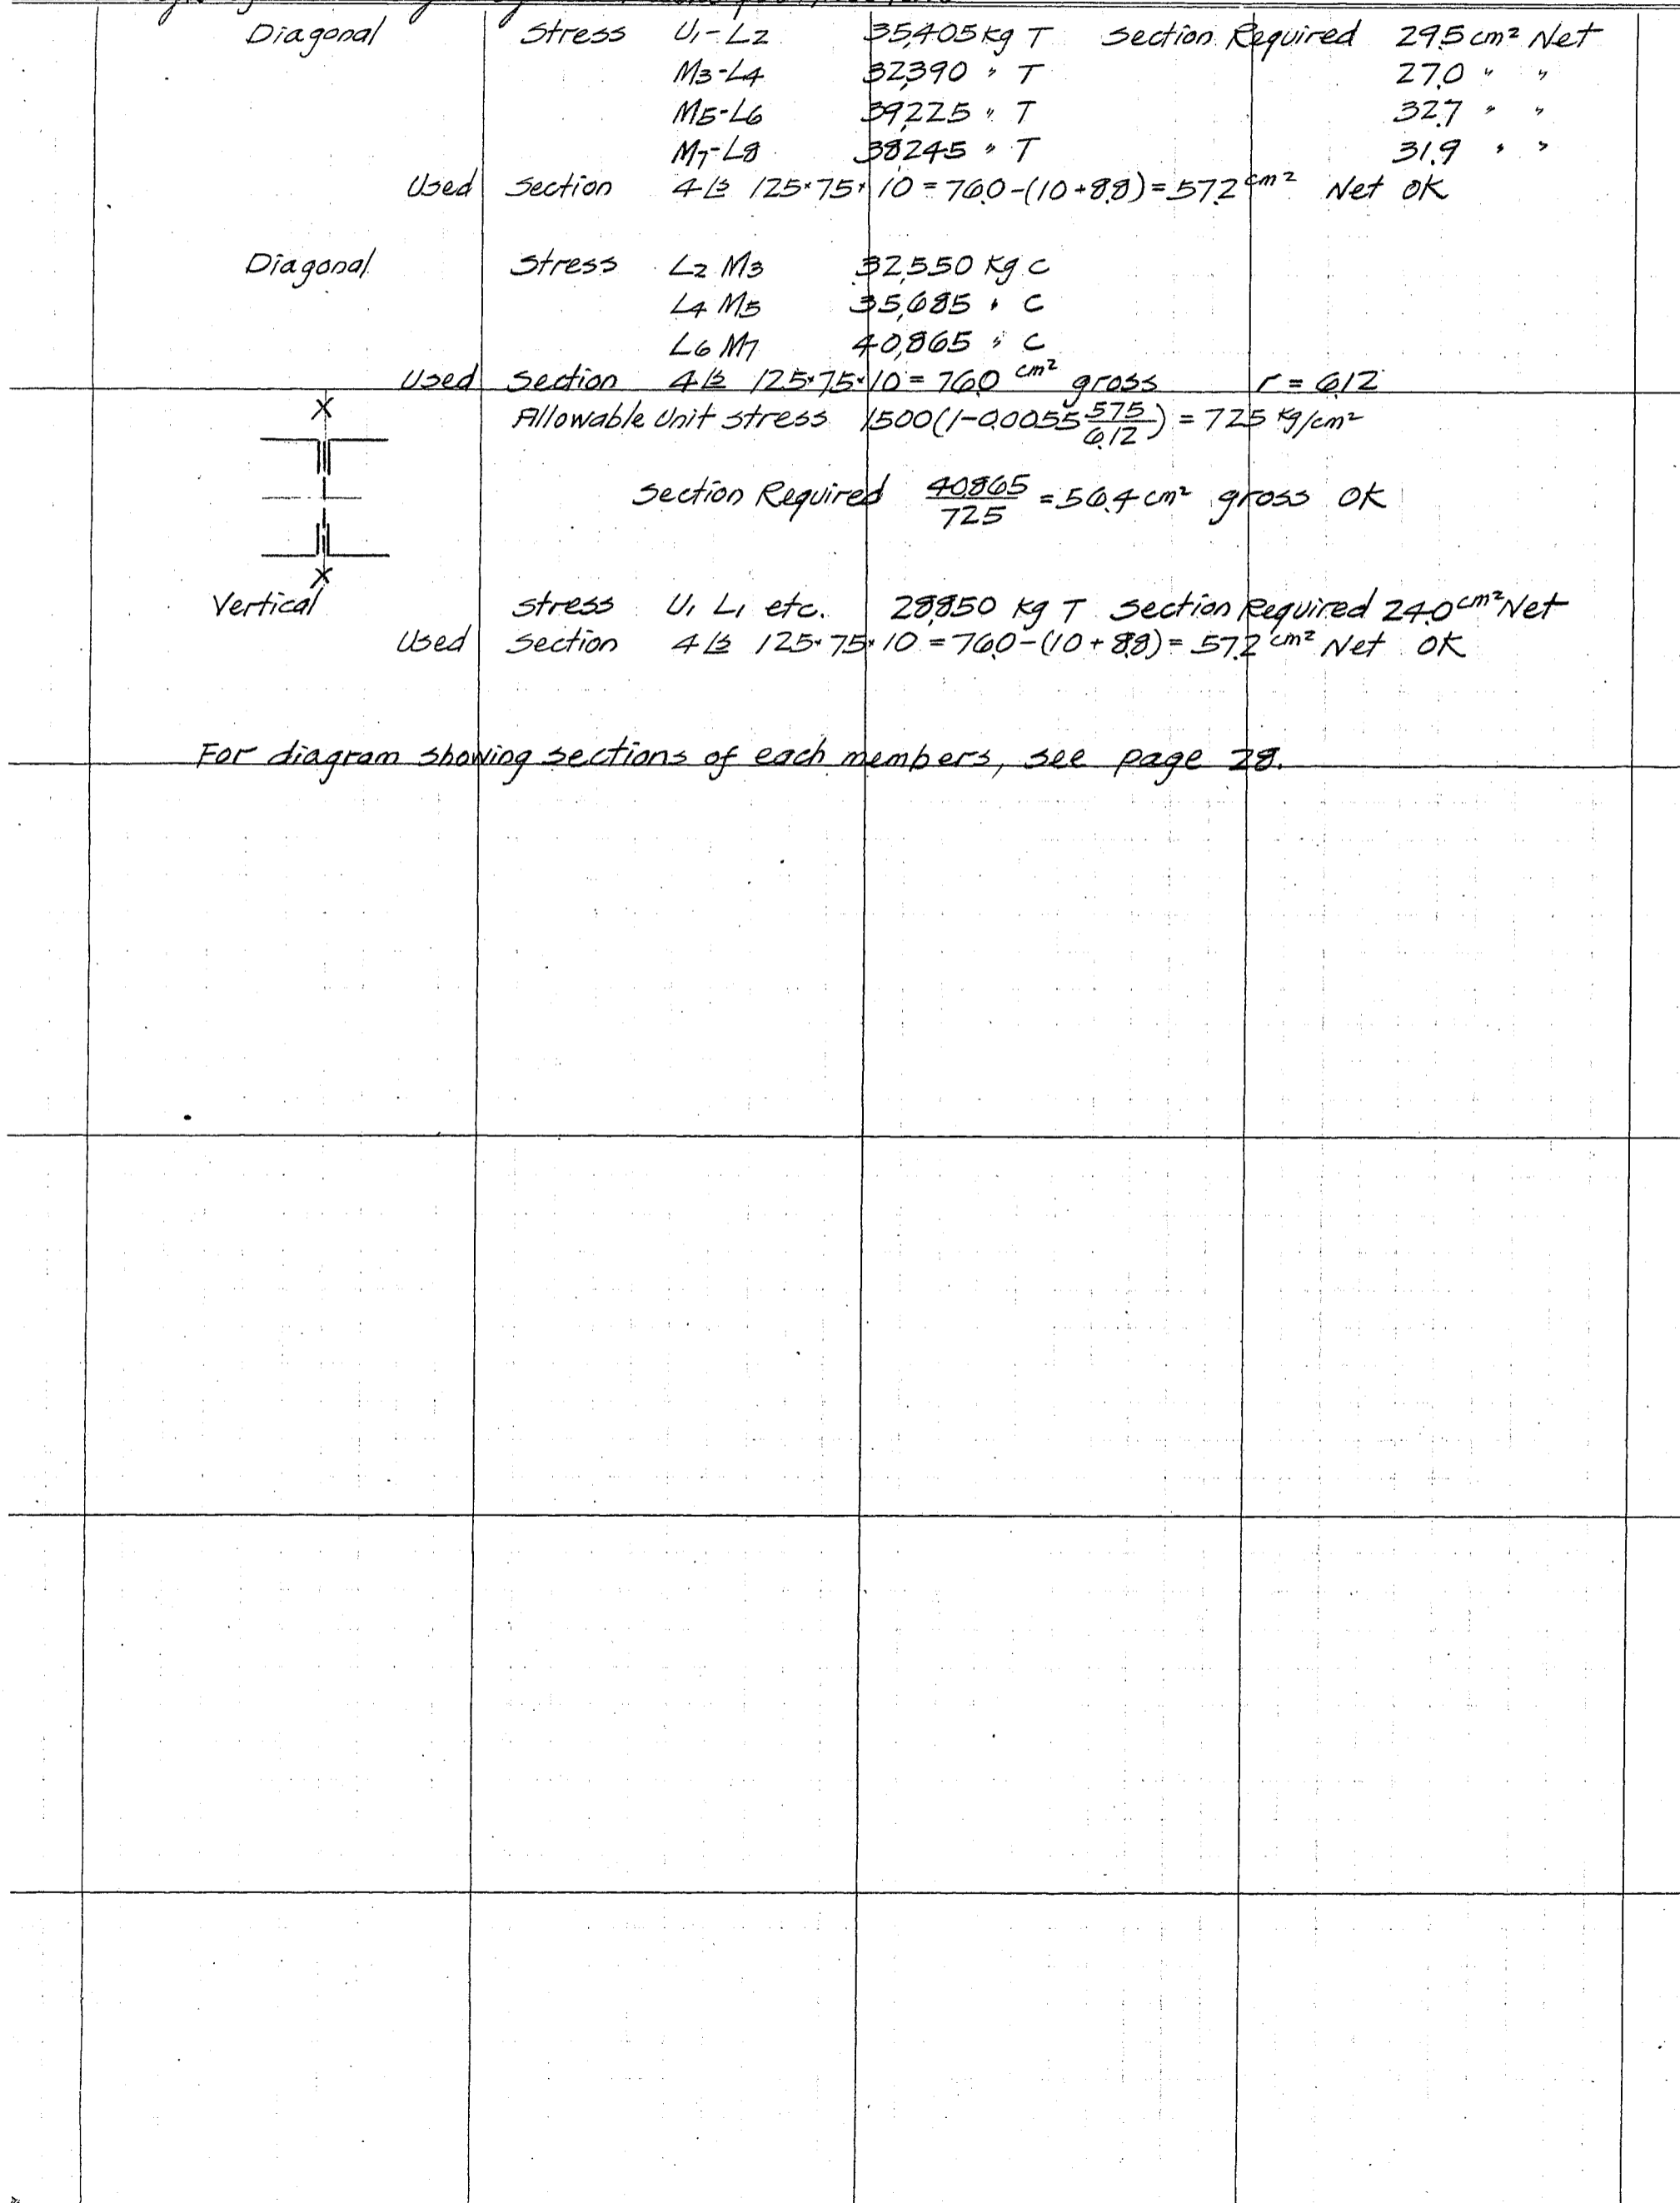 Diagonal Stress U1-L2 35,405 kg T Section Required 29.5 cm² Net
M3-L4 32,390 " T 27.0 " "
M5-L6 39,225 " T 32.7 " "
M7-L8 38,245 " T 31.9 " "
Used Section 4 Ls 125×75×10 = 76.0-(10+8.8) = 57.2 cm² Net OK
Diagonal Stress L2 M3 32,550 kg C
L4 M5 35,685 " C
L6 M7 40,865 " C
Used Section 4 Ls 125×75×10 = 76.0 cm² gross r = 6.12
X
Allowable Unit stress 1500(1-0.0055 575/6.12) = 725 kg/cm²
Section Required 40865/725 = 56.4 cm² gross OK
X
Vertical Stress U1 L1 etc. 28,850 kg T Section Required 24.0 cm² Net
Used Section 4 Ls 125×75×10 = 76.0-(10+8.8) = 57.2 cm² Net OK
For diagram showing sections of each members, see page 28.